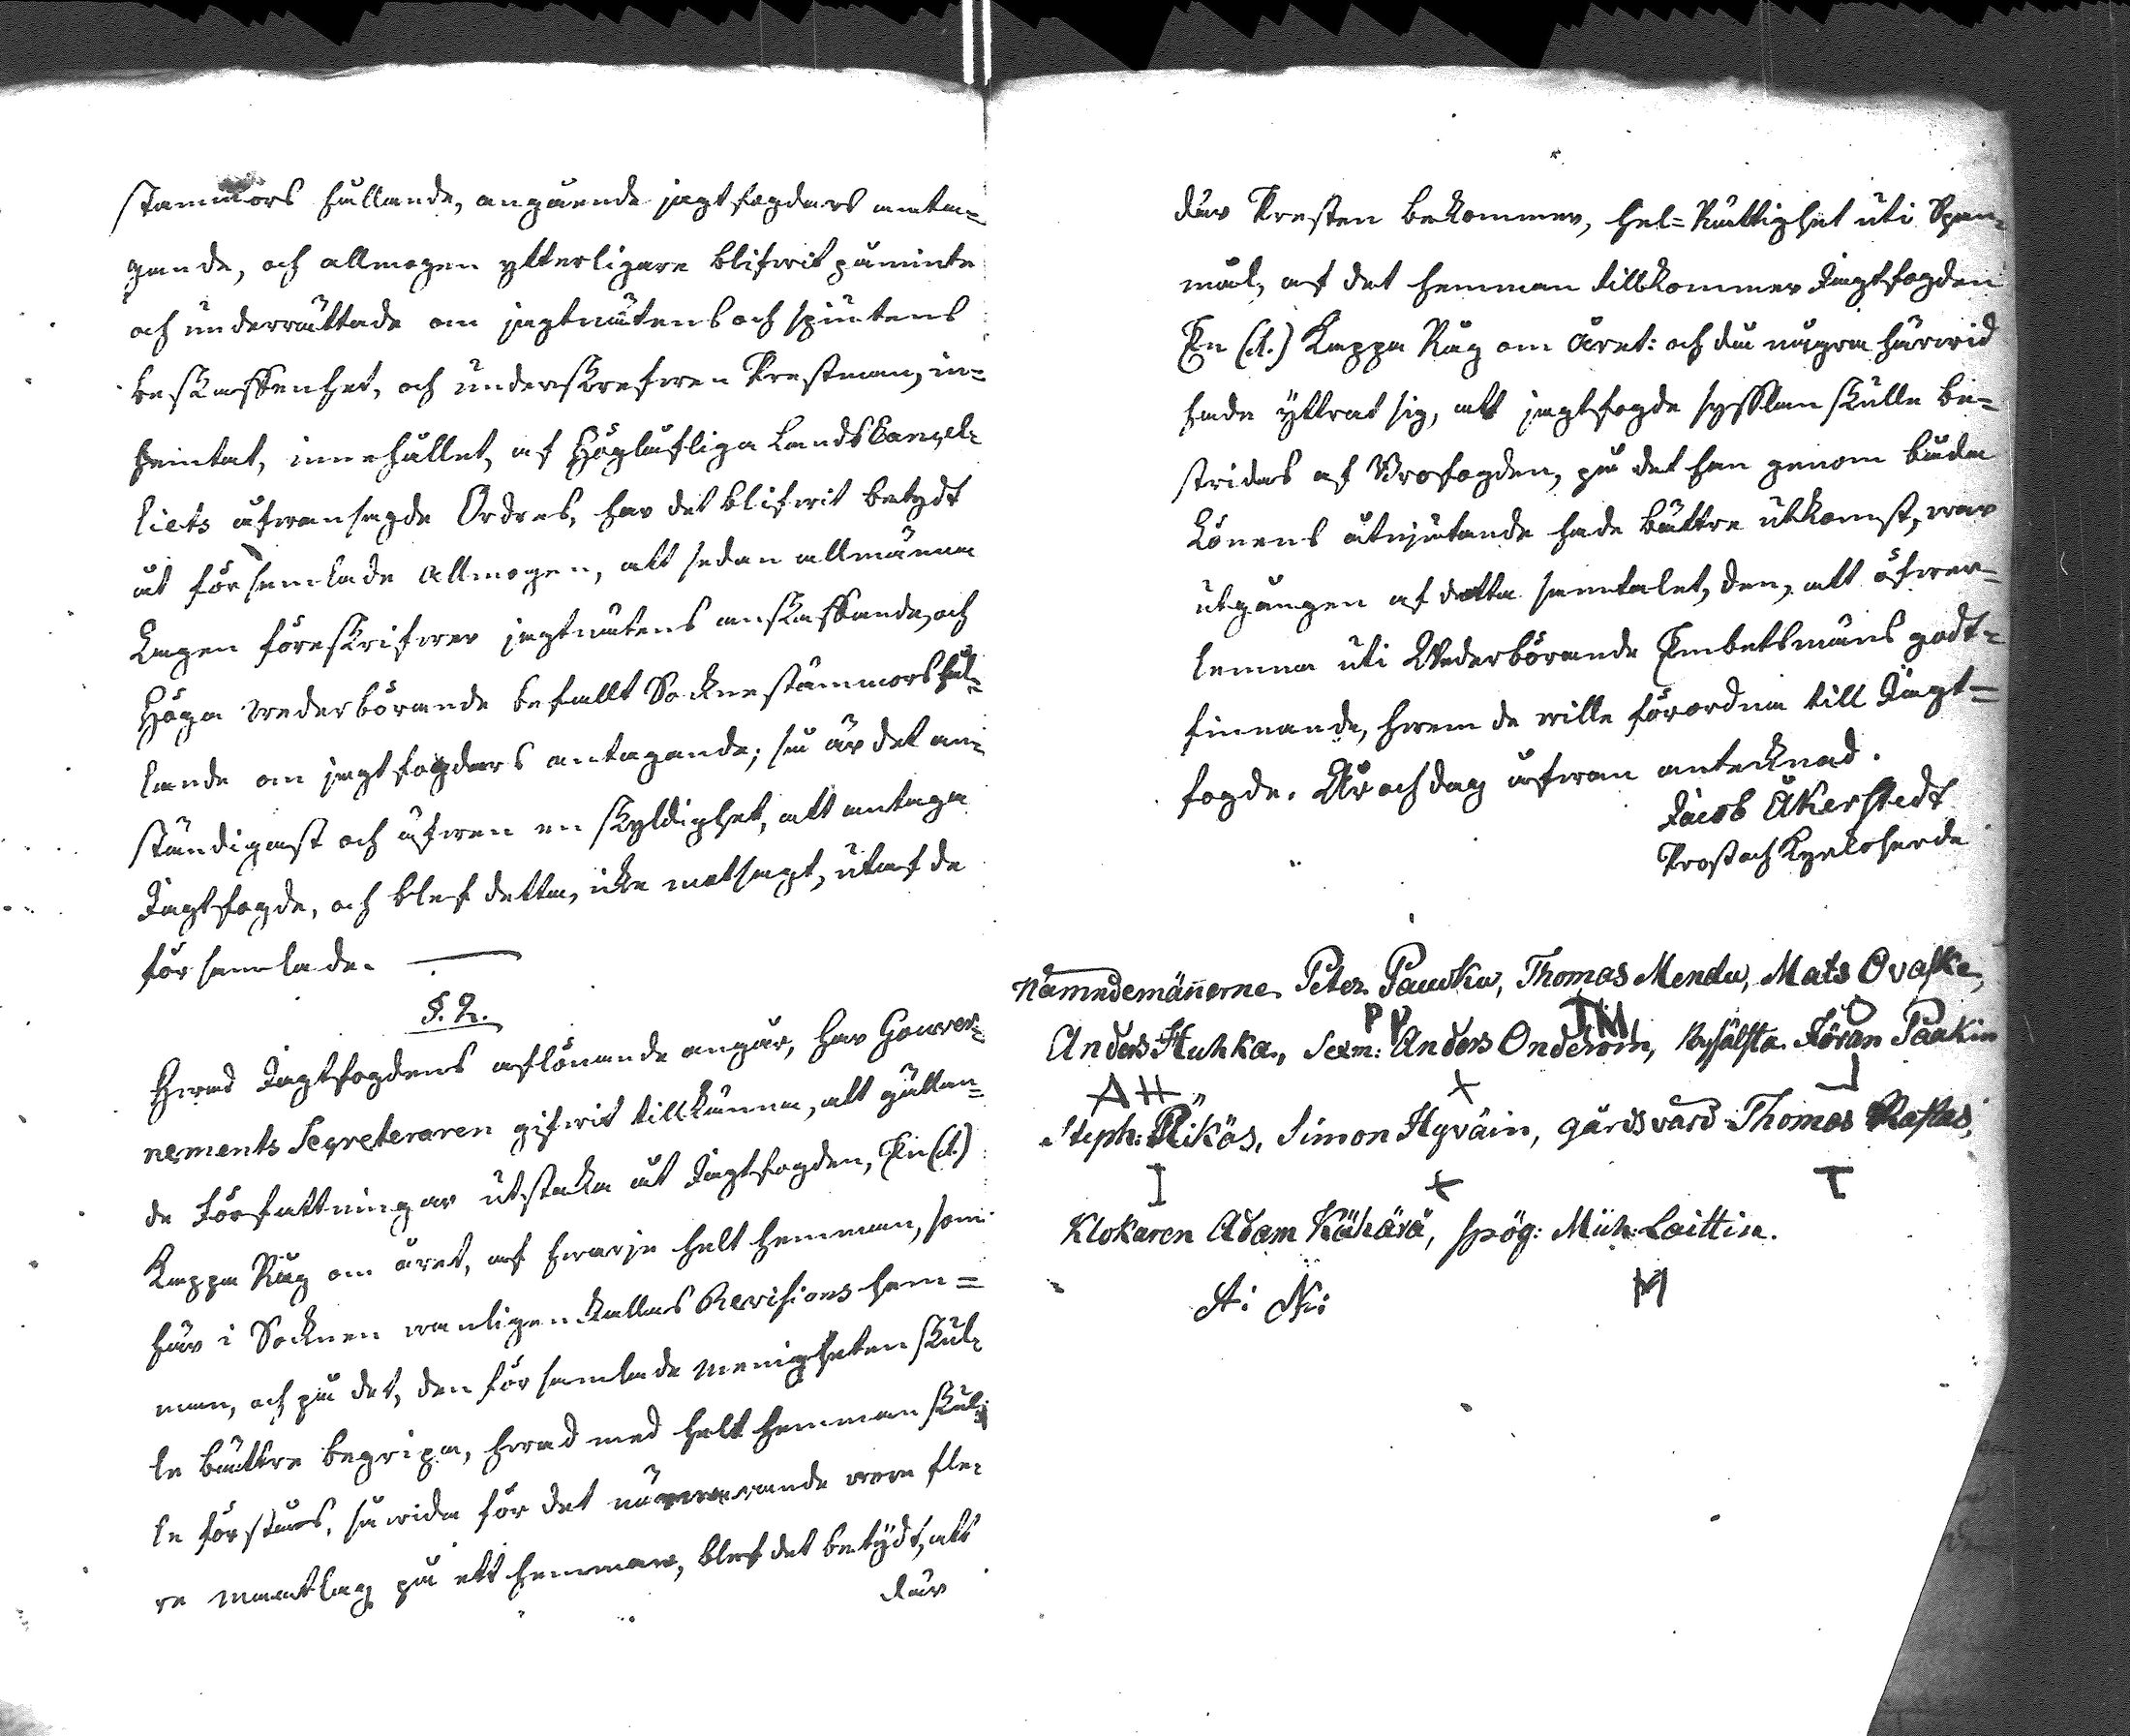 stammors hållande, angående jagtfogdars anta-
gande, och allmogen ytterligare blifwit påminte
och underrättade om jagtnätens och spjutens
beskaffenhet, och underskrefwen Prestman, in-
hemtat, innehållet, af Höglofliga Landskancel-
liets åfwansagde Ordres, har det blifwit betydt
åt församlade allmogen, att sedan allmänna
Lagen föreskrifwer jagtnätens anskaffande, och
Höga wederbörande befallt Socknestämmors hål-
lande om jagtfogdars antagande; så är det an-
ständigast och äfwen en skyldighet, att antaga
Jagtfogde, och blef detta, icke motsagt, utaf de
församlade.
§. 2.
Hwad Jagtfogdens aflönande angår, har Gouver-
nements Secreteraren gifwit tillkänna, att gällan-
de Författningar utstaka åt Jagtfogden, En (1.)
Kappa Råg om året, af hwarje helt hemman, som
här i Socknen wanligen kallas Revisions hem-
man, och på det, den församlade menigheten skul-
le bättre begripa, hwad med helt hemman skul-
le förstås, såwida för det närwarande woro fle-
re mantlag på ett hemman, blef det betydt, att
där
där Presten bekommer, hel-Rättighet uti Span-
mål, af det hemman tillkommer Jagtfogden
En (1.) Kappa Råg om året: och då några härwid
hade yttrat sig, att jagtfogde sysslan skulle be-
stridas af Brofogden, på det han genom båda
Lönens åtnjutande hade bättre utkomst, war
utgången af detta samtalet, den, att öfwer-
lemna uti Wederbörande Embetsmäns godt-
finnande, hwem de wille förordna till Jagt-
fogde. År och dag åfwan antecknad.
Jacob Åkerstedt
Prost och Kyrkoherde
Nämndemännerne Peter Paucku, Thomas Mendu, Mats Ovaska,
PP TM
Anders Huhka, Sexm: Anders Onderoin, Jöran Paakin
AH X
Steph: Rikös, Simon Hyväin, gårdsvard Thomas Raskas,
I X T
Klokaren Adam Kähärä, spög: Mich: Laittin.
A: K: M